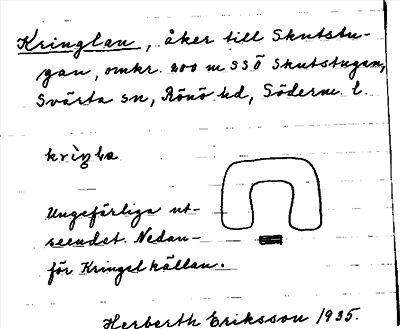 Kringlan, åker till Skutstu-
gan, omkr. 200 m SSÖ Skutstugan,
Svärta sn, Rönö hd, Söderm. l.
Ungefärliga ut-
seendet. Nedan-
för Kringelkällan.
Herberth Eriksson 1935.